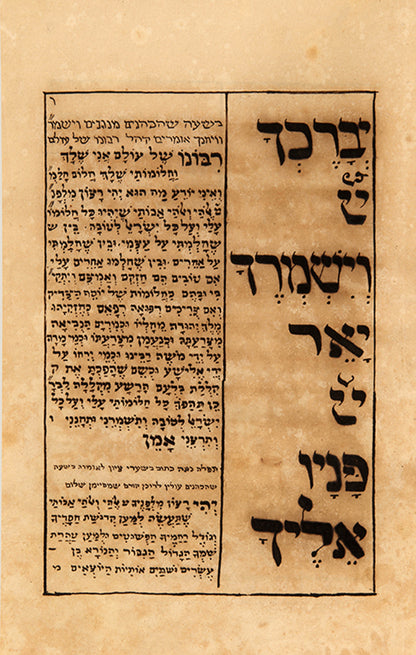 יְבָרֶכְךָ
וְיִשְׁמְרֶךָ
יָאֵר
פָּנָיו
אֵלֶיךָ
בשעה שהכהנים מנגנים וישמר
ויחנך אומרים הקהל רבונו של עולם
רִבּוֹנוֹ שֶׁל עוֹלָם אֲנִי שֶׁלָּךְ
וַחֲלוֹמוֹתַי שֶׁלָּךְ חֲלוֹם חָלַמְתִּי
וְאֵינִי יוֹדֵעַ מַה הוּא יְהִי רָצוֹן מִלְּפָנֶי
אֲבוֹתַי שֶׁיִּהְיוּ כָּל חֲלוֹמוֹתַי
עָלַי וְעַל כָּל יִשְׂרָאֵל לְטוֹבָה. בֵּין
שֶׁחָלַמְתִּי עַל עַצְמִי. וּבֵין שֶׁחָלַמְתִּי
עַל אֲחֵרִים. וּבֵין שֶׁחָלְמוּ אֲחֵרִים עָלַי
אִם טוֹבִים הֵם חַזְּקֵם וְאַמְּצֵם וְיִתְקַיְּ
בִי וּבָהֶם כַּחֲלוֹמוֹת שֶׁל יוֹסֵף הַצַּדִּיק
וְאִם צְרִיכִים רְפוּאָה רְפָאֵם כְּחִזְקִיָּהוּ
מֶלֶךְ יְהוּדָה מֵחָלְיוֹ וּכְמִרְיָם הַנְּבִיאָה
מִצָּרַעְתָּהּ וּכְנַעֲמָן מִצָּרַעְתּוֹ וּכְמֵי מָרָה
עַל יְדֵי מֹשֶׁה רַבֵּינוּ וּכְמֵי יְרִחוֹ עַל
יְדֵי אֱלִישָׁע וּכְשֵׁם שֶׁהָפַכְתָּ אֶת
קִלְלַת בִּלְעָם הָרָשָׁע מִקְּלָלָה לִבְרָ
כֵּן תַּהֲפֹךְ כָּל חֲלוֹמוֹתַי עָלַי וְעַל כָּל
יִשְׂרָאֵל לְטוֹבָה וְתִשְׁמְרֵנִי וּתְחָנֵּנִי
וְתִרְצֵנִי אָמֵן
תפלה נאה כתוב בשערי ציון לאומרו בשעה
שהכהנים עולין לדוכן קודם שמסיימן שלום
וִיהִי רָצוֹן מִלְּפָנֶיךָ אֲבוֹתַי
שֶׁתַּעֲשֶׂה לְמַעַן קְדֻשַּׁת חֲסָדֶיךָ
וְגוֹדֶל רַחֲמֶיךָ הַפְּשׁוּטִים וּלְמַעַן טָהֳרַת
שִׁמְךָ הַגָּדוֹל הַגִּבּוֹר וְהַנּוֹרָא בֶּן
עֶשְׂרִים וּשְׁתַּיִם אוֹתִיּוֹת הַיּוֹצְאִים מִ